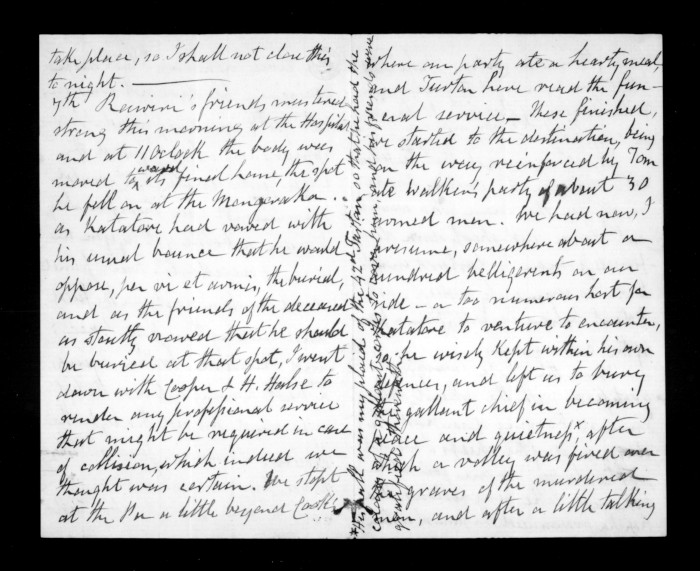 take place, so I shall not close this
to night.
7th Rawiri's friends mustered
strong this morning at the Hospital
and at 11 O'clock the body was
moved towards its final home, the spot
he fell on at the Mangaraka.
as Katatore had vowed with
his usual bounce that he would
oppose, per vi et armis, the burial,
and as the friends of the deceased
as stoutly vowed that he should
be buried at that spot, I went
down with Cooper & H. Halse to
render any professional service
that might be required in case
of collision, which indeed we
thought was certain. We stopt
at the Pa a little beyond
where our party ate a hearty meal,
and Turton have read the fun-
eral service - These finished,
we started to the destination, being
on the way reinforced by Tom
ate Walker's party of about 30
armed men. We had now, I
presume, somewhere about a
hundred belligerents on our
side - a too numerous host for
Katatore to venture to encounter,
so he wisely kept within his own
defences, and left us to bury
the gallant chief in becoming
peace and quietness x, after
which a valley was fired over
graves of the murdered
men, and after a little talking
wore my plaid of the 42nd Tartan, so that he had the